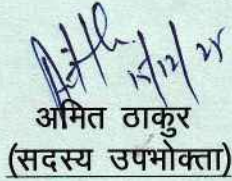 15/12/25
अमित ठाकुर
(सदस्य उपभोक्ता)